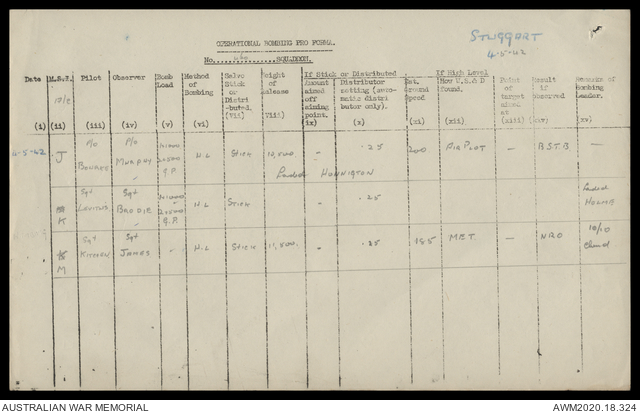 STUGGART
4-5-42
OPERATIONAL BOMBING PRO FORMA.
No. 460 SQUADRON.
Date M.S.R. Pilot Observer Bomb Load Method of Bombing Salvo Stick or Distri-buted. (vii) Height of Release (viii) If Stick or Distributed If High Level Point of target aimed at (xiii) Result if observed Remarks of Bombing Leader.
Amount aimed off aiming point. ix) Distributor setting (auto-matic distri butor only). (x) Est. Ground Speed (xi) How W.S.& D found. (xii)
(i) (ii) (iii) (iv) (v) (vi) (xv)
4-5-42 J P/O P/O Murphy G.P. H.L Stick " .25 200 Air Plot — B.S.T.B —
Landed Honington
K Sgt Sgt Brodie G.P. H.L Stick " .25 Landed Holme
M Sgt Kitchen Sgt James " H.L Stick 11,500. " .25 185 MET. — NRO 10/10 Cloud
AUSTRALIAN WAR MEMORIAL
AWM2020.18.324